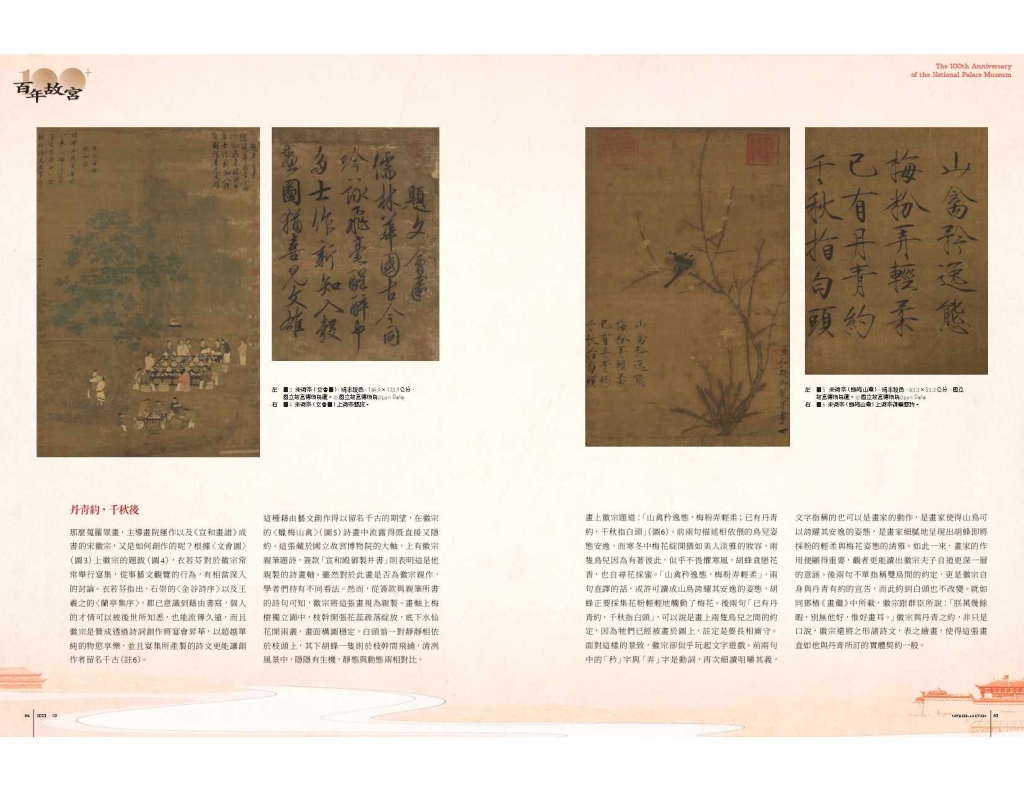 100+
百年故宮
The 100th Anniversary
of the National Palace Museum
題文會圖
儒林華國古今同
吟詠飛毫醒醉中
多士作新知入彀
畫圖猶喜見文雄
山禽矜逸態
梅粉弄輕柔
已有丹青約
千秋指白頭
山禽矜逸態
梅粉弄輕柔
已有丹青約
千秋指白頭
丹青約,千秋後
那麼蒐羅眾畫,主導畫院運作以及《宣和畫譜》成
書的宋徽宗,又是如何創作的呢?根據〈文會圖〉
(圖3)上徽宗的題跋(圖4),衣若芬對於徽宗常
常舉行宴集,從事藝文觀覽的行為,有相當深入
的討論。衣若芬指出,石崇的〈金谷詩序〉以及王
羲之的〈蘭亭集序〉,都已意識到藉由書寫,個人
的才情可以被後世所知悉,也能流傳久遠,而且
徽宗是贊成透過詩詞創作將宴會昇華,以超越單
純的物慾享樂,並且宴集所產製的詩文更能讓創
作者留名千古(註6)。
這種藉由藝文創作得以留名千古的期望,在徽宗
的〈蠟梅山禽〉(圖5)詩畫中流露得既直接又隱
約。這張藏於國立故宮博物院的大軸,上有徽宗
親筆題詩,簽款「宣和殿御製并書」則表明這是他
親製的詩畫軸。雖然對於此畫是否為徽宗親作,
學者們持有不同看法。然而,從簽款與親筆所書
的詩句可知,徽宗將這張畫視為親製。畫軸上梅
樹獨立画中,枝幹開張花蕊疏落綻放,底下水仙
花開兩叢,畫面構圖穩定,白頭翁一對靜靜相依
於枝頭上,其下胡蜂一隻則於枝幹間飛繞,清冽
風景中,隱隱有生機,靜態與動態兩相對比。
畫上徽宗題道:「山禽矜逸態,梅粉弄輕柔;已有丹青
約,千秋指白頭」(圖6)。前兩句描述相依偎的鳥兒姿
態安逸,而寒冬中梅花綻開猶如美人淡雅的妝容,兩
隻鳥兒因為有著彼此,似乎不畏懼寒風,胡蜂貪戀花
香,也自尋花採蜜。「山禽矜逸態,梅粉弄輕柔」,兩
句直譯的話,或許可讀成山鳥誇耀其安逸的姿態,胡
蜂正要採集花粉輕輕地觸動了梅花。後兩句「已有丹
青約,千秋指白頭」,可以說是畫上兩隻鳥兒之間的約
定,因為牠們已經被畫於圖上,註定是要長相廝守。
面對這樣的景致,徽宗卻似乎玩起文字遊戲。前兩句
中的「矜」字與「弄」字是動詞,再次細讀咀嚼其義,
文字指稱的也可以是畫家的動作,是畫家使得山鳥可
以誇耀其安逸的姿態,是畫家細膩地呈現出胡蜂即將
採粉的輕柔與梅花姿態的清雅。如此一來,畫家的作
用便顯得重要,觀者更能讀出徽宗夫子自道更深一層
的意涵。後兩句不單指稱雙鳥間的約定,更是徽宗自
身與丹青有約的宣告,而此約到白頭也不改變。就如
同鄧椿《畫繼》中所載,徽宗跟群臣所說:「朕萬幾餘
暇,別無他好,惟好畫耳。」徽宗與丹青之約,非只是
口說,徽宗還將之形諸詩文,表之繪畫,使得這張畫
直如他與丹青所訂的實體契約一般。